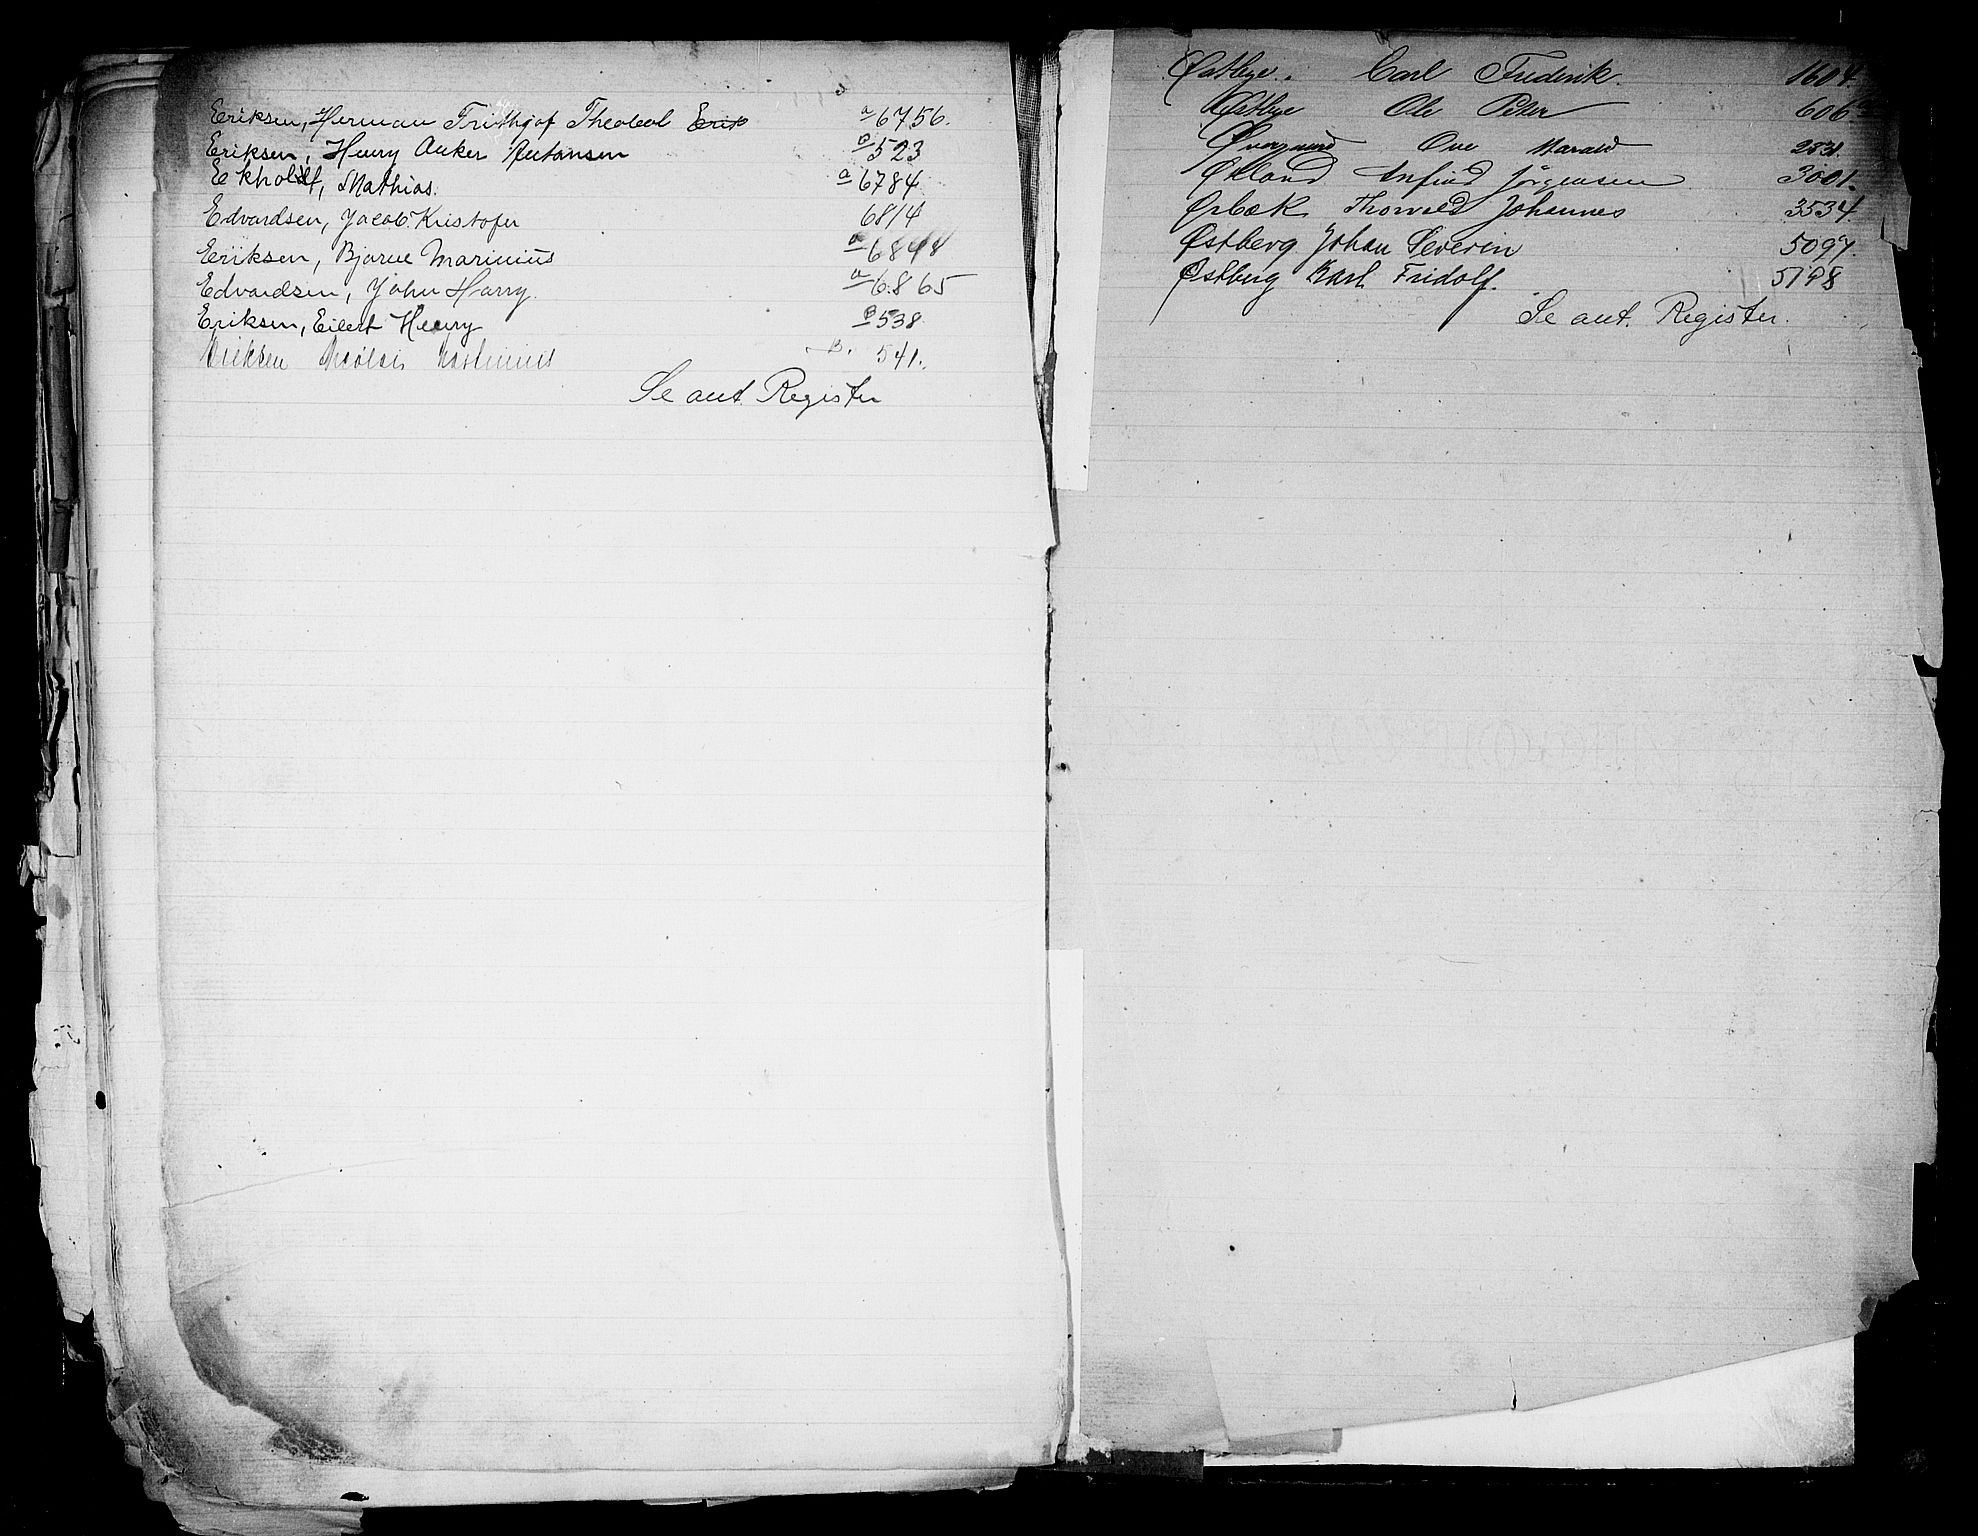 Eriksen, Herman Frithjof Theobol Erik a 6756.
Eriksen, Henry Anker Antonsen a 523
Ekholdt, Mathias. a 6784
Edvardsen, Jacob Kristofer 6814
Eriksen, Bjarne Marinius a 6848
Edvardsen, John Harry. a 6865
Eriksen, Eilert Henry B 538
Eriksen Nicolai Martinius B. 541.
Se aut. Register
Østbye. Carl Frederik. 1604.
Østbye Ole Peter 606
Øvergaard Ove Harald 2531.
Økland Anfind Jörgensen 3001.
Ørbæk Thorvald Johannes 3534.
Østberg Johan Severin 5097.
Østberg Karl Fridolf. 5198
Se aut. Register.